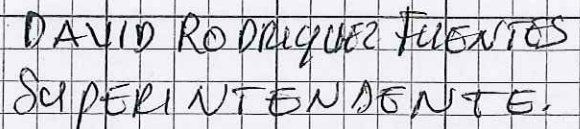 DAVID RODRIGUEZ FUENTES
SUPERINTENDENTE.